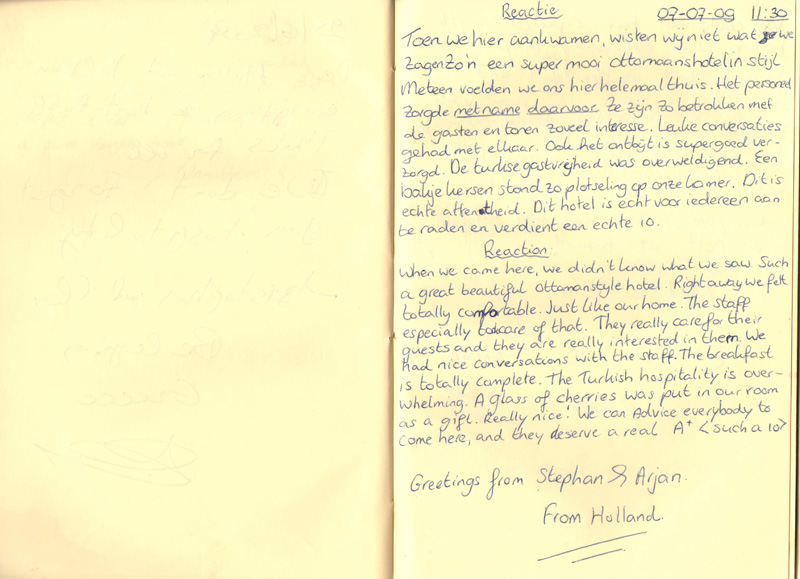 Reactie 07-07-09 11:30
Toen we hier aankwamen, wisten wij niet wat we
zagen Zo'n een super mooi ottomaanshotel in stijl
Meteen voelden we ons hier helemaal thuis. Het personeel
zorgde metname daarvoor Ze zijn zo betrokken met
de gasten en tonen zoveel interesse. Leuke conversaties
gehad met elkaar. Ook het ontbijt is supergoed ver-
zorgd. De turkse gastvrijheid was overweldigend. Een
bakje kersen stond zo plotseling op onze kamer. Dit is
echte attentheid. Dit hotel is echt voor iedereen aan
te raden en verdient een echte 10.
Reaction
When we came here, we didn't know what we saw. Such
a great beautiful Ottomanstyle hotel. Right away we felt
totally comfortable. Just like our home. The staff
especially tookcare of that. They really care for their
guests and they are really interested in them. We
had nice conversations with the staff. The breakfast
is totally complete. The Turkish hospitality is over-
whelming. A glass of cherries was put in our room
as a gift. Really nice! We can Advice everybody to
come here, and they deserve a real A+ <such a 10>
Greetings from Stephan & Arjan.
From Holland.